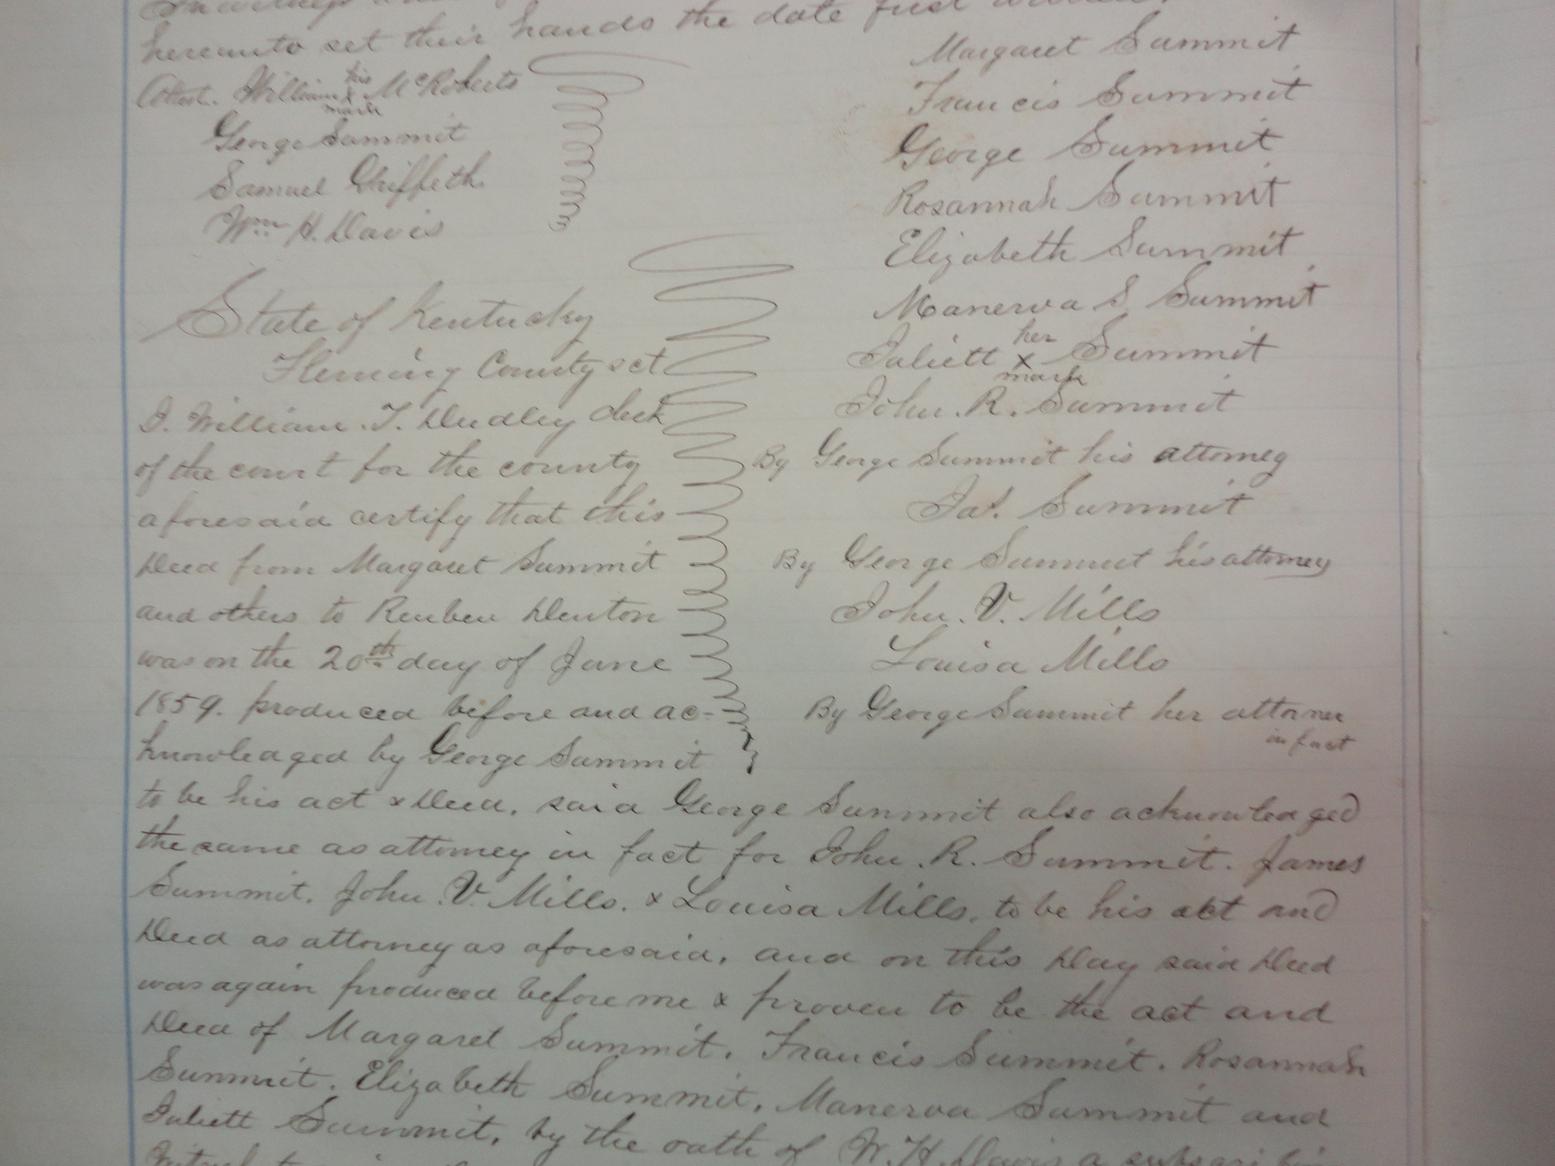 hereunto set their hands the date first
Margaret Summit
Attest. William his x mark McRoberts
Francis Summit
George Summit
George Summit
Samuel Griffeth
Rosannah Summit
Wm H. Davis
Elizabeth Summit
Manerva S. Summit
State of Kentucky
Juliett her x mark Summit
Fleming County sct
John. R. Summit
I. William. T. Dudley clerk
of the court for the county
By George Summit his attorney
aforesaid certify that this
Jas. Summit
Deed from Margaret Summit
By George Summit his attorney
and others to Reuben Denton
John. V. Mills
was on the 20th day of June
Louisa Mills
1859. produced before and ac-
By George Summit her attorney
in fact
knowledged by George Summit
to be his act & Deed, said George Summit also acknowledged
the same as attorney in fact for John. R. Summit. James
Summit. John. V. Mills. & Louisa Mills, to be his act and
Deed as attorney as aforesaid, and on this Day said Deed
was again produced before me & proven to be the act and
Deed of Margaret Summit. Francis Summit. Rosannah
Summit. Elizabeth Summit. Manerva Summit and
Juliett Summit, by the oath of W. H. Davis a